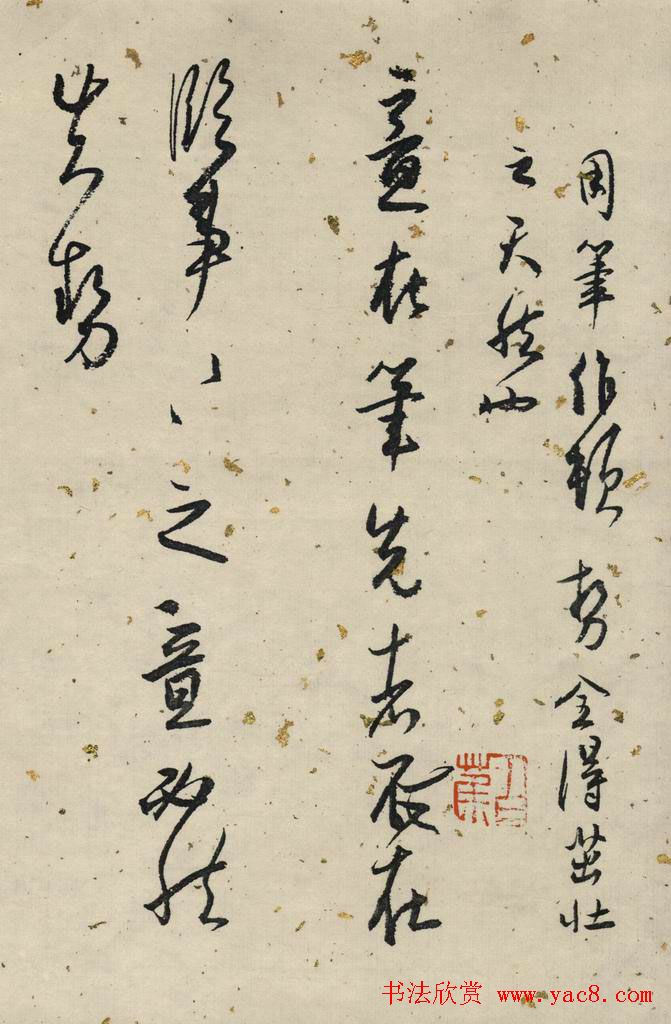 用筆作頓势全得茁壮
之天然也
意在筆先者在
臨事之意然
势
书法欣赏 www.yac8.com